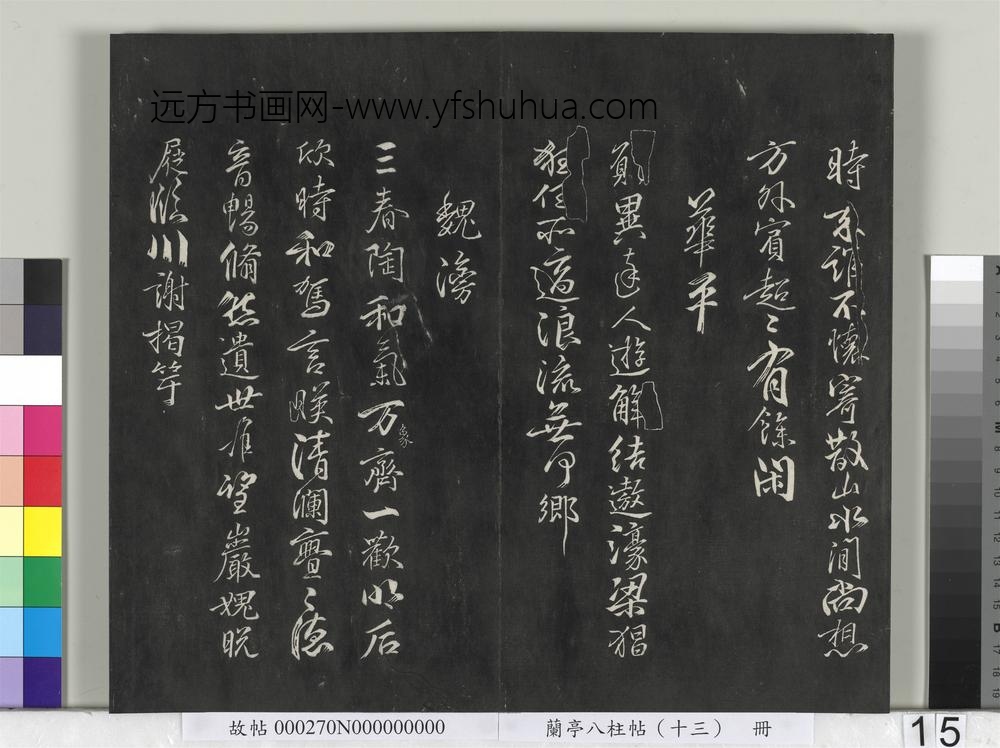 远方书画网-www.yfshuhua.com
時來誰不懷寄散山水間尚想
方外賓超〻有餘閑
華平
願異達人遊解結遨濠梁猖
狂任所適浪流無何鄉
魏滂
三春陶和氣万象齊一歡明后
欣時和駕言暎清瀾亹〻德
音暢脩然遺世望巖愧脫
屣臨川謝揭竿
故帖 000270N000000000
蘭亭八柱帖（十三） 冊
15